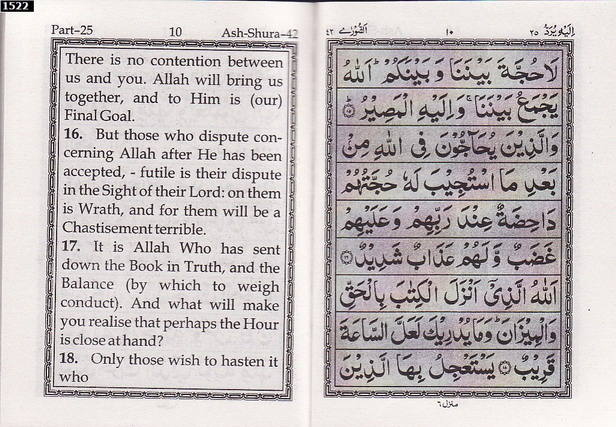 1522
Part–25 10 Ash-Shura–42
There is no contention between
us and you. Allah will bring us
together, and to Him is (our)
Final Goal.
16. But those who dispute con-
cerning Allah after He has been
accepted, - futile is their dispute
in the Sight of their Lord: on them
is Wrath, and for them will be a
Chastisement terrible.
17. It is Allah Who has sent
down the Book in Truth, and the
Balance (by which to weigh
conduct). And what will make
you realise that perhaps the Hour
is close at hand?
18. Only those wish to hasten it
who
اِلَيْهِ يُرَدُّ ٢٥ ١٠ اَلشُّوْرٰى ٤٢
لَا حُجَّةَ بَيْنَنَا وَ بَيْنَكُمْ ؕ اَللّٰهُ
يَجْمَعُ بَيْنَنَا ۚ وَ اِلَيْهِ الْمَصِيْرُ ؕ ﴿١٥﴾
وَالَّذِيْنَ يُحَآجُّوْنَ فِى اللّٰهِ مِنْۢ
بَعْدِ مَا اسْتُجِيْبَ لَهٗ حُجَّتُهُمْ
دَاحِضَةٌ عِنْدَ رَبِّهِمْ وَ عَلَيْهِمْ
غَضَبٌ وَّ لَهُمْ عَذَابٌ شَدِيْدٌ ﴿١٦﴾
اَللّٰهُ الَّذِىْۤ اَنْزَلَ الْكِتٰبَ بِالْحَقِّ
وَالْمِيْزَانَ ؕ وَمَا يُدْرِيْكَ لَعَلَّ السَّاعَةَ
قَرِيْبٌ ﴿١٧﴾ يَسْتَعْجِلُ بِهَا الَّذِيْنَ
منزل ٦